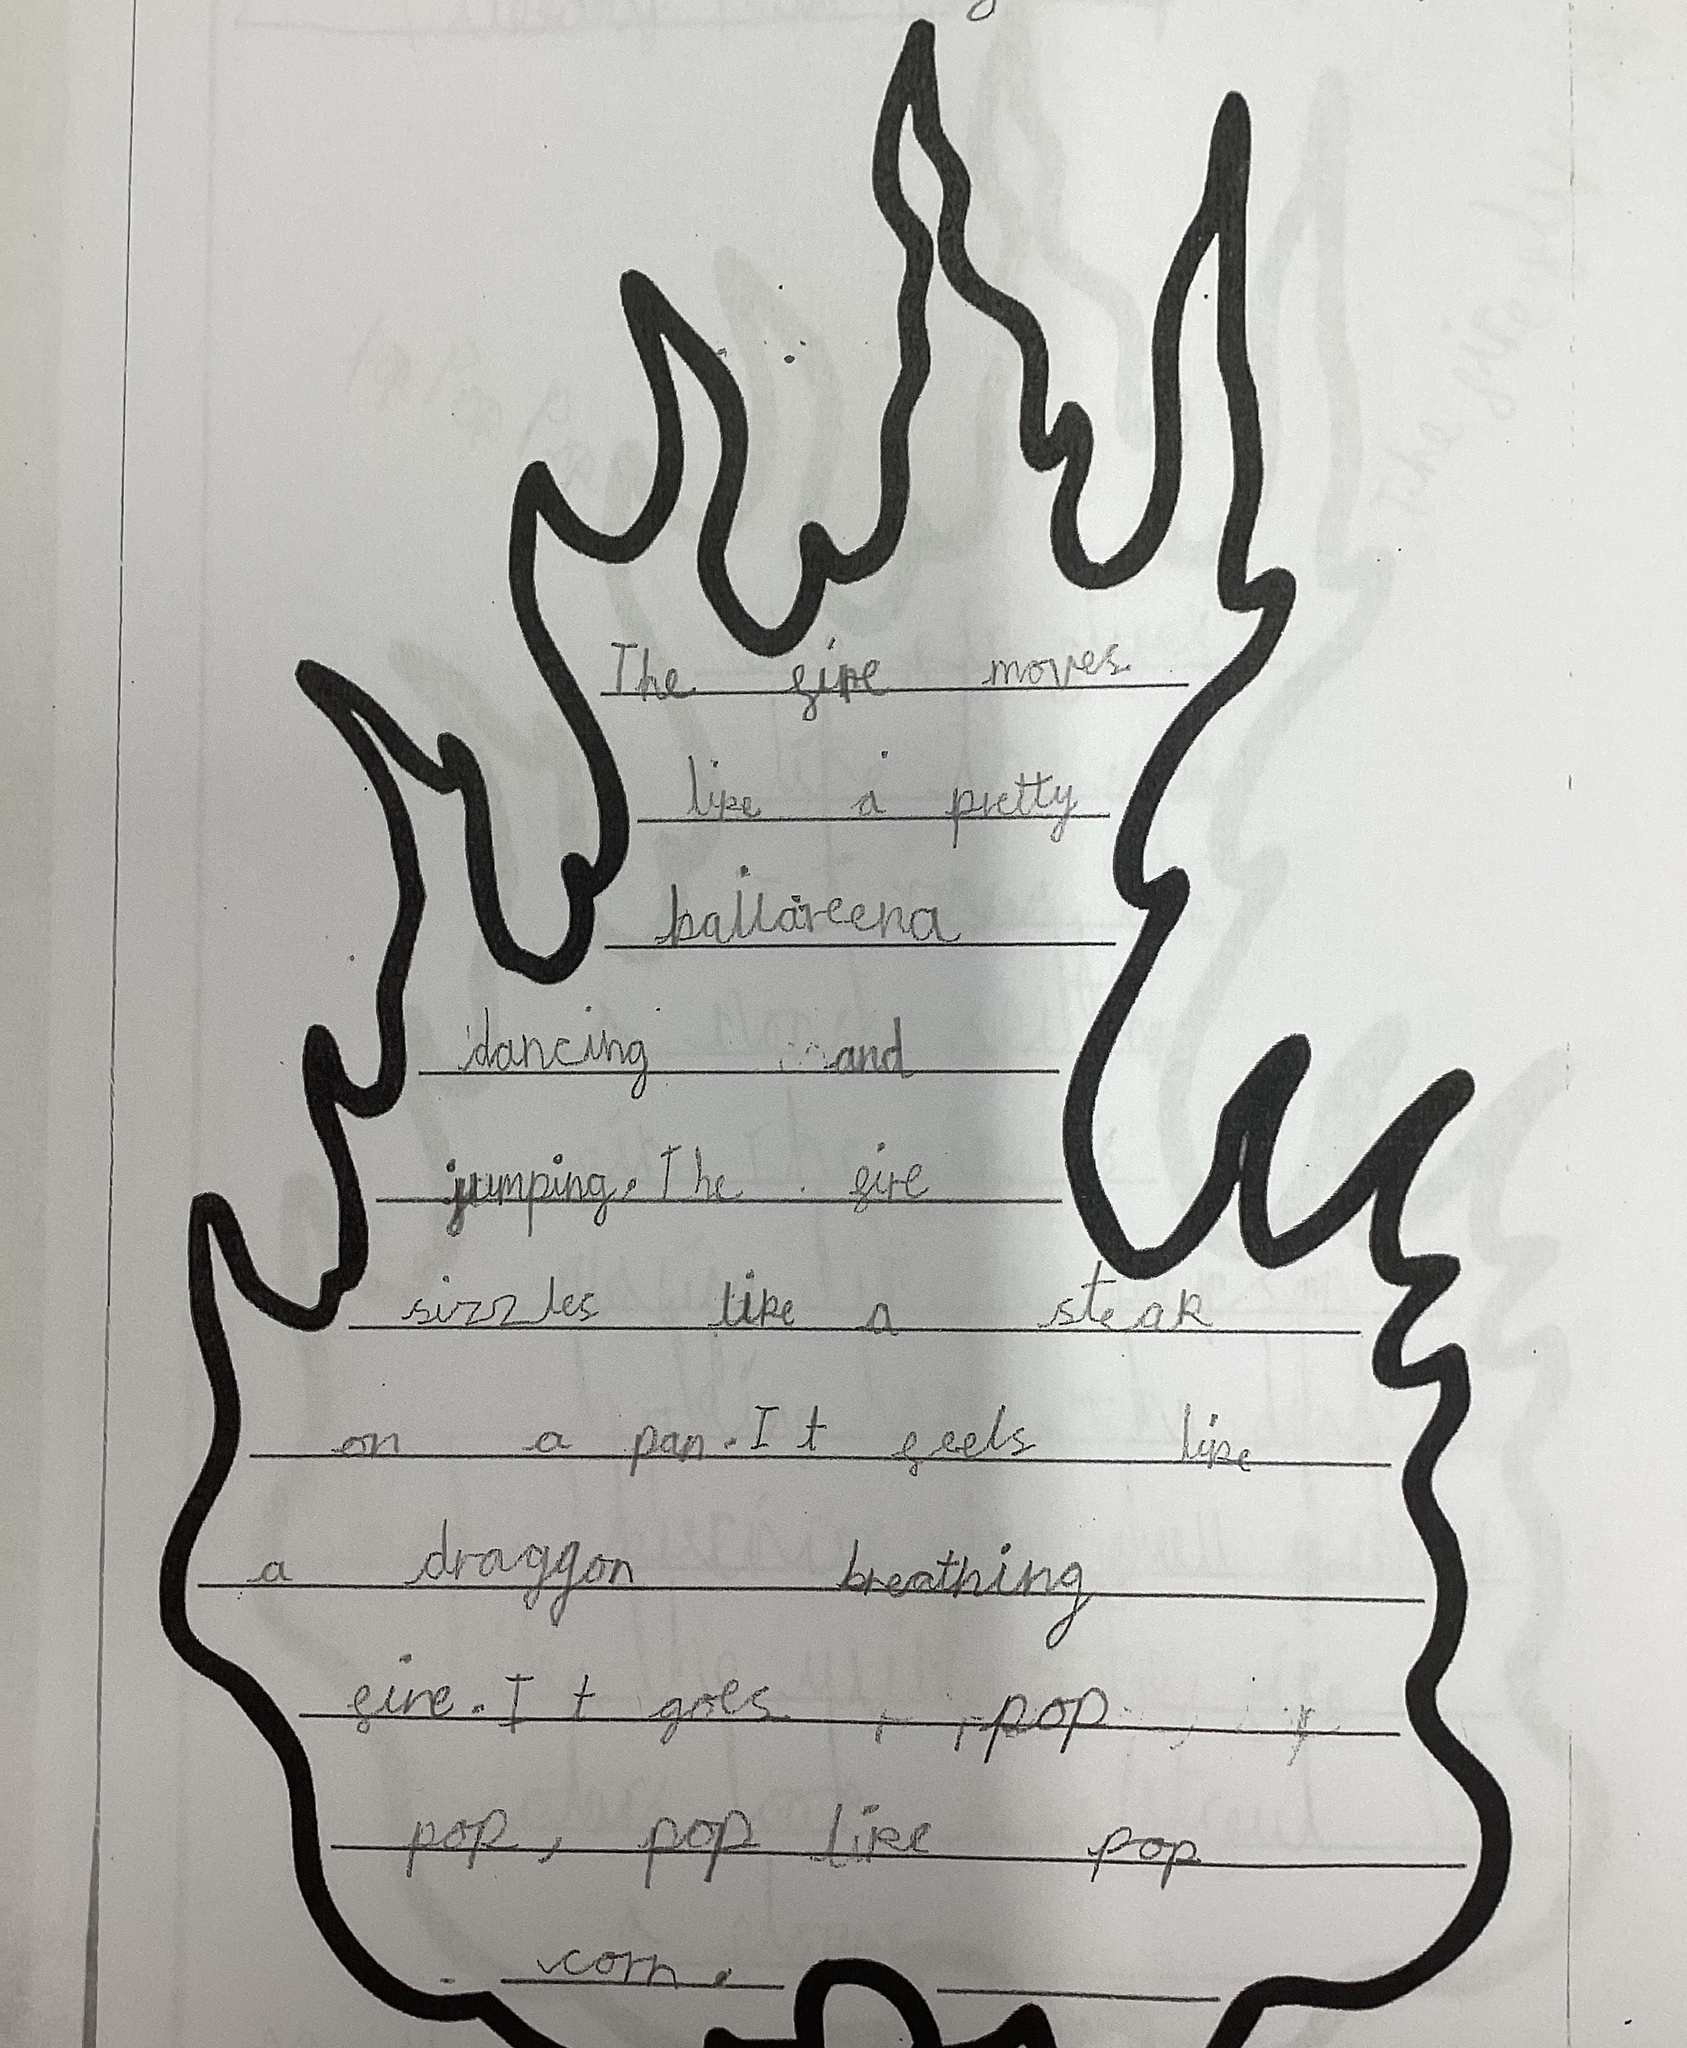 The fire moves
like a pretty
ballareena
dancing and
jumping. The fire
sizzles like a steak
on a pan. It feels like
a draggon breathing
fire. It goes pop
pop, pop like pop
corn.